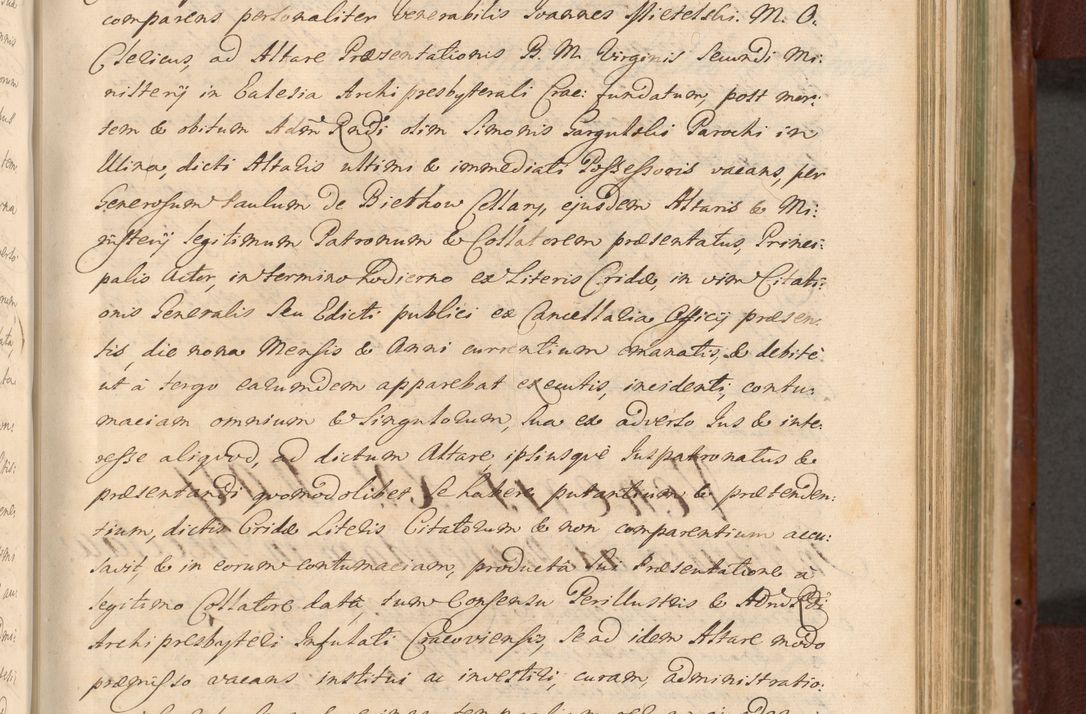 comparens personaliter venerabilis Ioannes Mietelski. M. O.
Clericus, ad Altare Præsentationis B. M. Virginis Secundi Mi:
nisterij in Eclesia Archipresbyterali Crac: fundatum, post mor:
tem & obitum Adm Rndi olim Simonis Gargulski Parochi in
Ulina, dicti Altaris ultimi & immediati Possessoris vacans, per
Generosum Paulum de Biethow Cellary, ejusdem Altaris & Mi:
nisterij legitimum Patronum & Collatorem præsentatus, Princi:
palis Actor, in termino hodierno ex Literis Cridæ, in vim Citati:
onis Generalis seu Edicti publici ex Cancellaria Officij præsen:
tis, die nona Mensis & Anni currentium emanatis, & debite
ut à tergo earumdem apparebat executis, incidenti, contu:
maciam omnium & Singulorum, sua ex adverso Jus & inte:
resse aliquod, ad dictum Altare, ipsiusque Juspatronatus &
præsentandi quomodolibet se habere putantium & prætenden:
tium, dictis Cridæ Literis Citatorum & non comparentium accu:
savit, & in eorum contumaciam, producta sui Præsentatione a
legitimo Collatore data, tum Consensu Perillustris & Adm Rdi
Archipresbyteri Infulati Cracoviensis, se ad idem Altare modo
præmisso vacans institui ac investiri, curam, administratio: